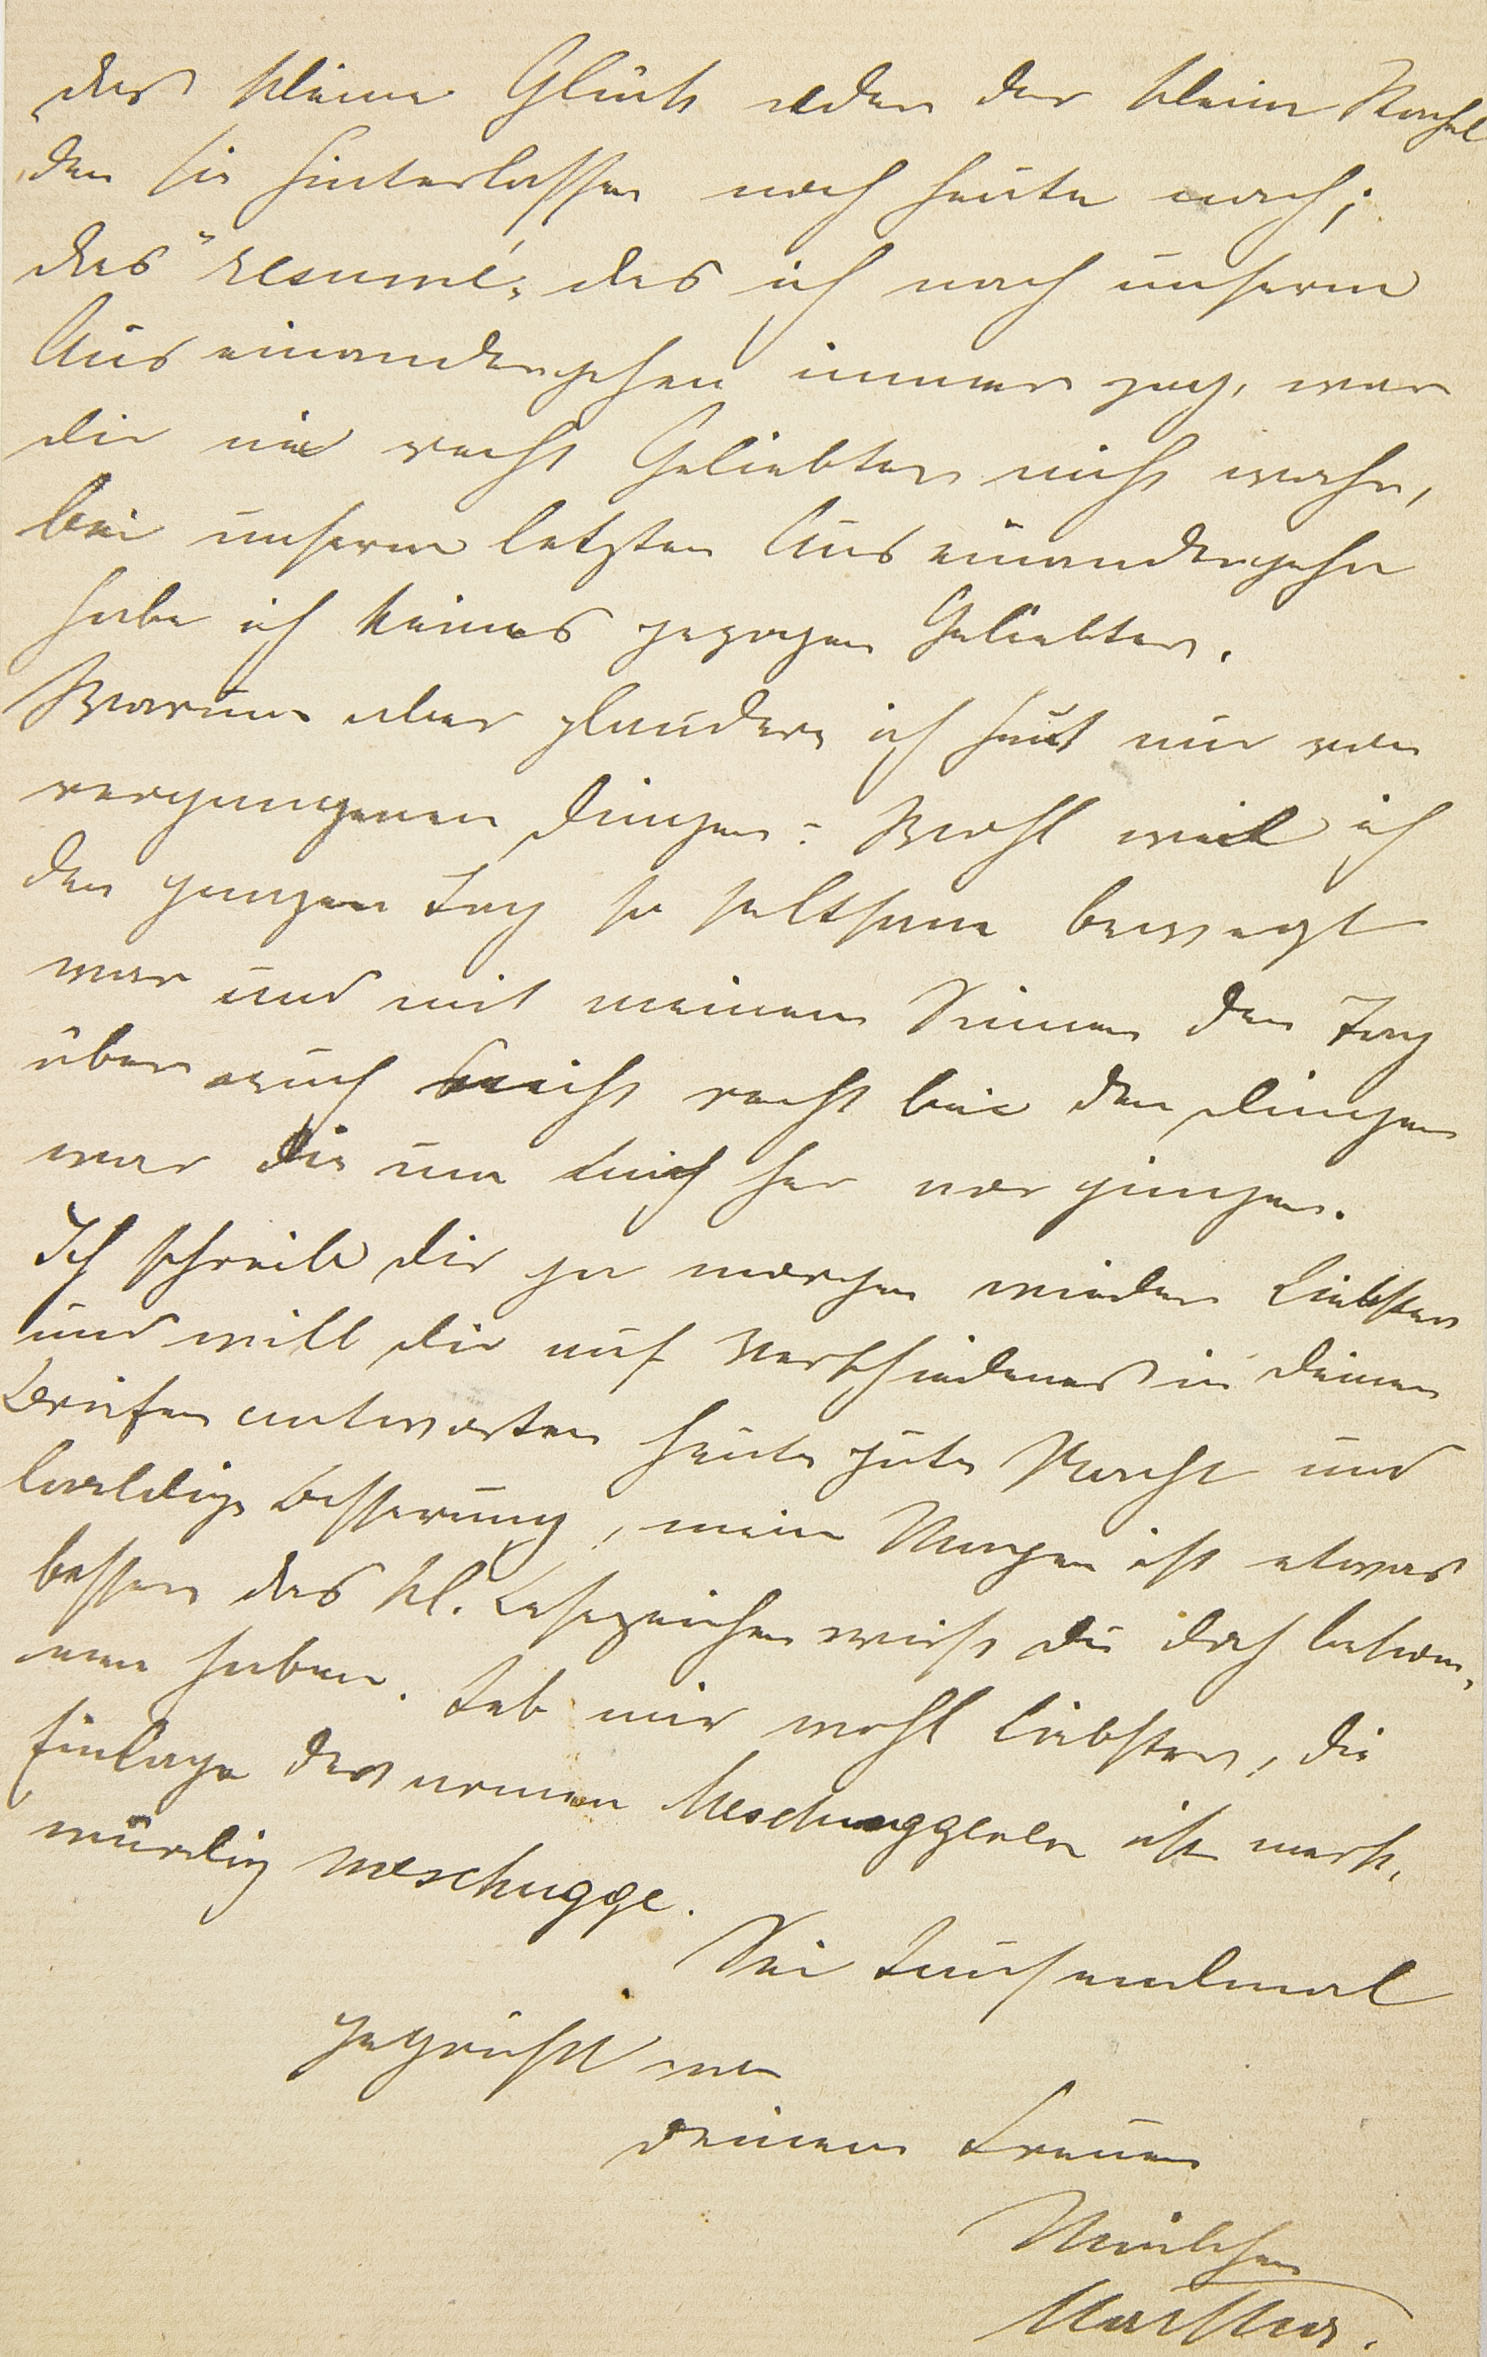 das kleine Glück oder der kleine Stachel
den sie hinterlassen noch heute nach;
das "resumé" das ich nach unserem
Auseinandergehen immer zog, war
dir nie recht Geliebter nicht wahr,
bei unserem letzten Auseinandergehn
habe ich keines gezogen Geliebter.
Warum aber plaudere ich heut nur von
vergangenen Dingen? Wohl weil ich
den ganzen Tag so seltsam bewegt
war und mit meinen Sinnen den Tag
über auch nicht recht bei den Dingen
war die um mich her vor gingen.
Ich schreibe dir ja morgen wieder Liebster
und will dir auf Verschiedenes in deinen
Briefen antworten heute gute Nacht und
baldige Besserung, mein Magen ist etwas
besser das kl. Lesezeichen wirst du doch bekom-
men haben. Leb mir wohl liebster, die
Einlage des armen Meschuggenen ist merk-
würdig meschugge.
Sei Tausendmal
gegrüßt von
deinem Treuen